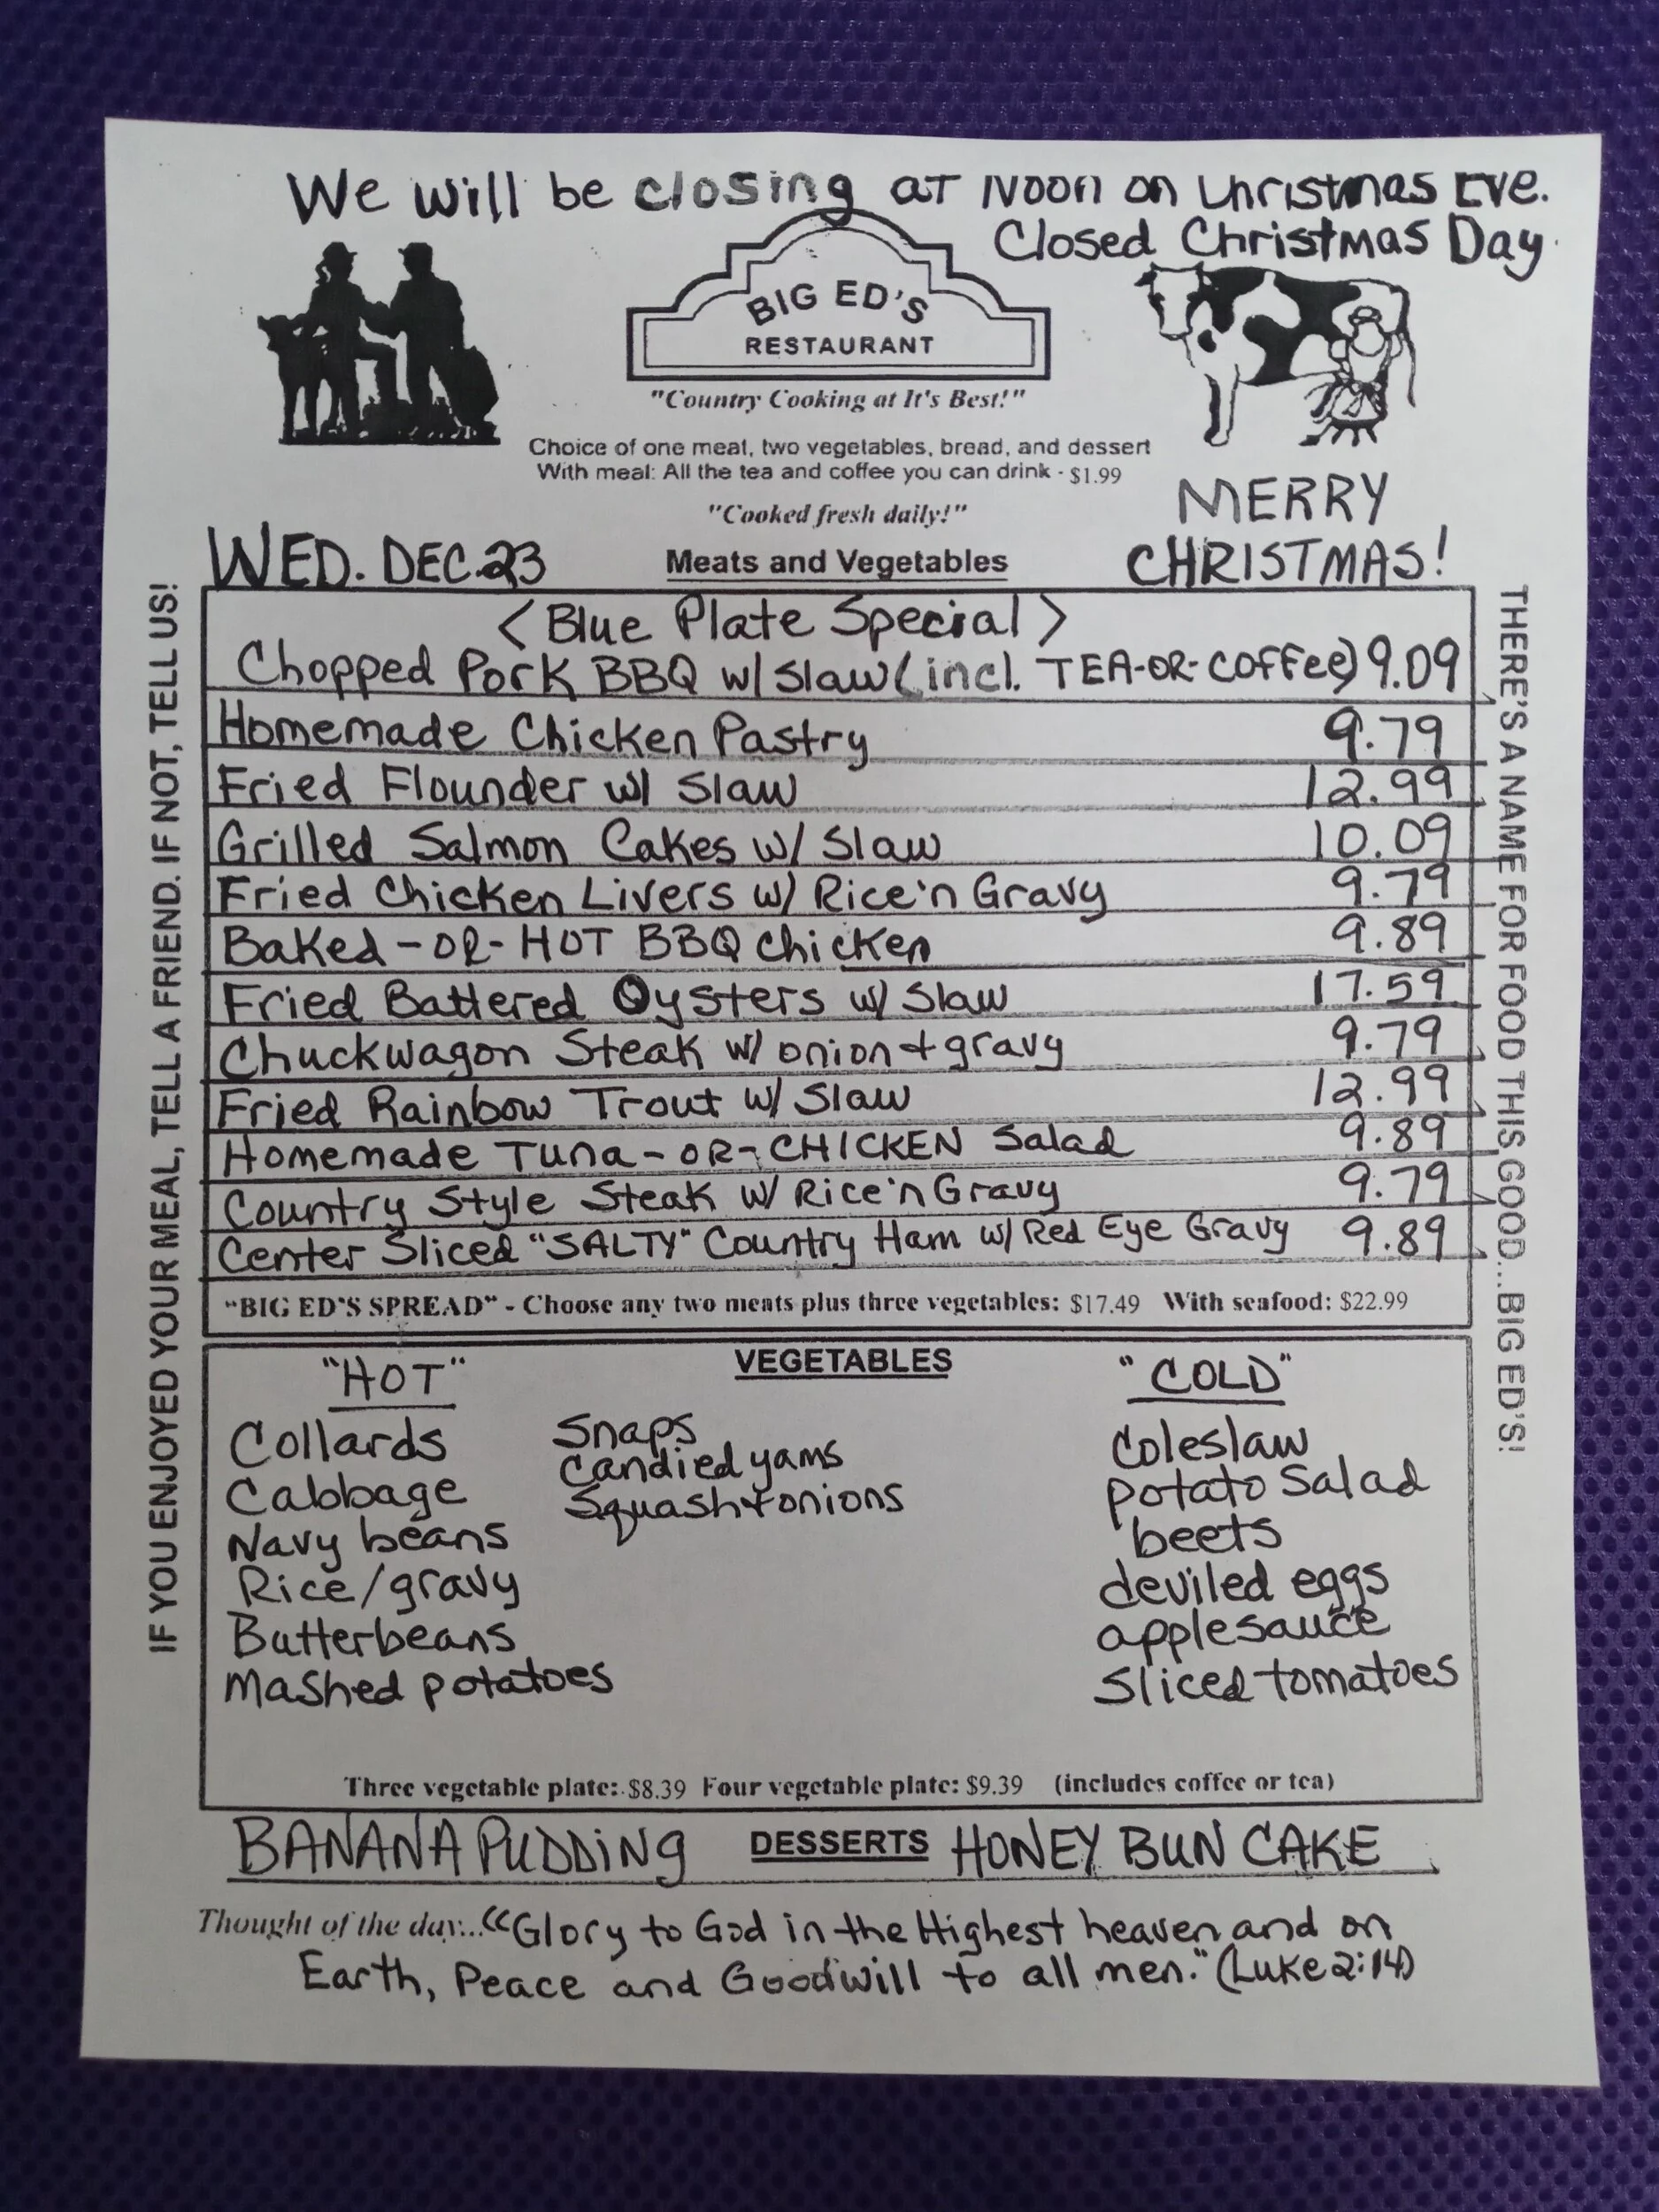 We will be closing at Noon on Christmas Eve.
Closed Christmas Day.
BIG ED'S
RESTAURANT
"Country Cooking at It's Best!"
Choice of one meat, two vegetables, bread, and dessert
With meal: All the tea and coffee you can drink - $1.99
"Cooked fresh daily!"
MERRY
CHRISTMAS!
WED. DEC. 23
Meats and Vegetables
IF YOU ENJOYED YOUR MEAL, TELL A FRIEND. IF NOT, TELL US!
<Blue Plate Special>
Chopped Pork BBQ w/ Slaw (incl. TEA-OR-COFFee) 9.09
Homemade Chicken Pastry 9.79
Fried Flounder w/ Slaw 12.99
Grilled Salmon Cakes w/ Slaw 10.09
Fried Chicken Livers w/ Rice'n Gravy 9.79
Baked-OR-HOT BBQ chicken 9.89
Fried Battered Oysters w/ Slaw 17.59
Chuckwagon Steak w/ onion + gravy 9.79
Fried Rainbow Trout w/ Slaw 12.99
Homemade Tuna-OR-CHICKEN Salad 9.89
Country Style Steak w/ Rice'n Gravy 9.79
Center Sliced "SALTY" Country Ham w/ Red Eye Gravy 9.89
"BIG ED'S SPREAD" - Choose any two meats plus three vegetables: $17.49 With seafood: $22.99
THERE'S A NAME FOR FOOD THIS GOOD...BIG ED'S!
VEGETABLES
"HOT"
Collards
Cabbage
Navy beans
Rice/gravy
Butterbeans
Mashed potatoes
Snaps
Candied yams
Squash+onions
"COLD"
Coleslaw
potato Salad
beets
deviled eggs
applesauce
Sliced tomatoes
Three vegetable plate: $8.39 Four vegetable plate: $9.39 (includes coffee or tea)
BANANA PUDDiNG DESSERTS HONEY BUN CAKE
Thought of the day..."Glory to God in the Highest heaven and on
Earth, Peace and Goodwill to all men." (Luke 2:14)